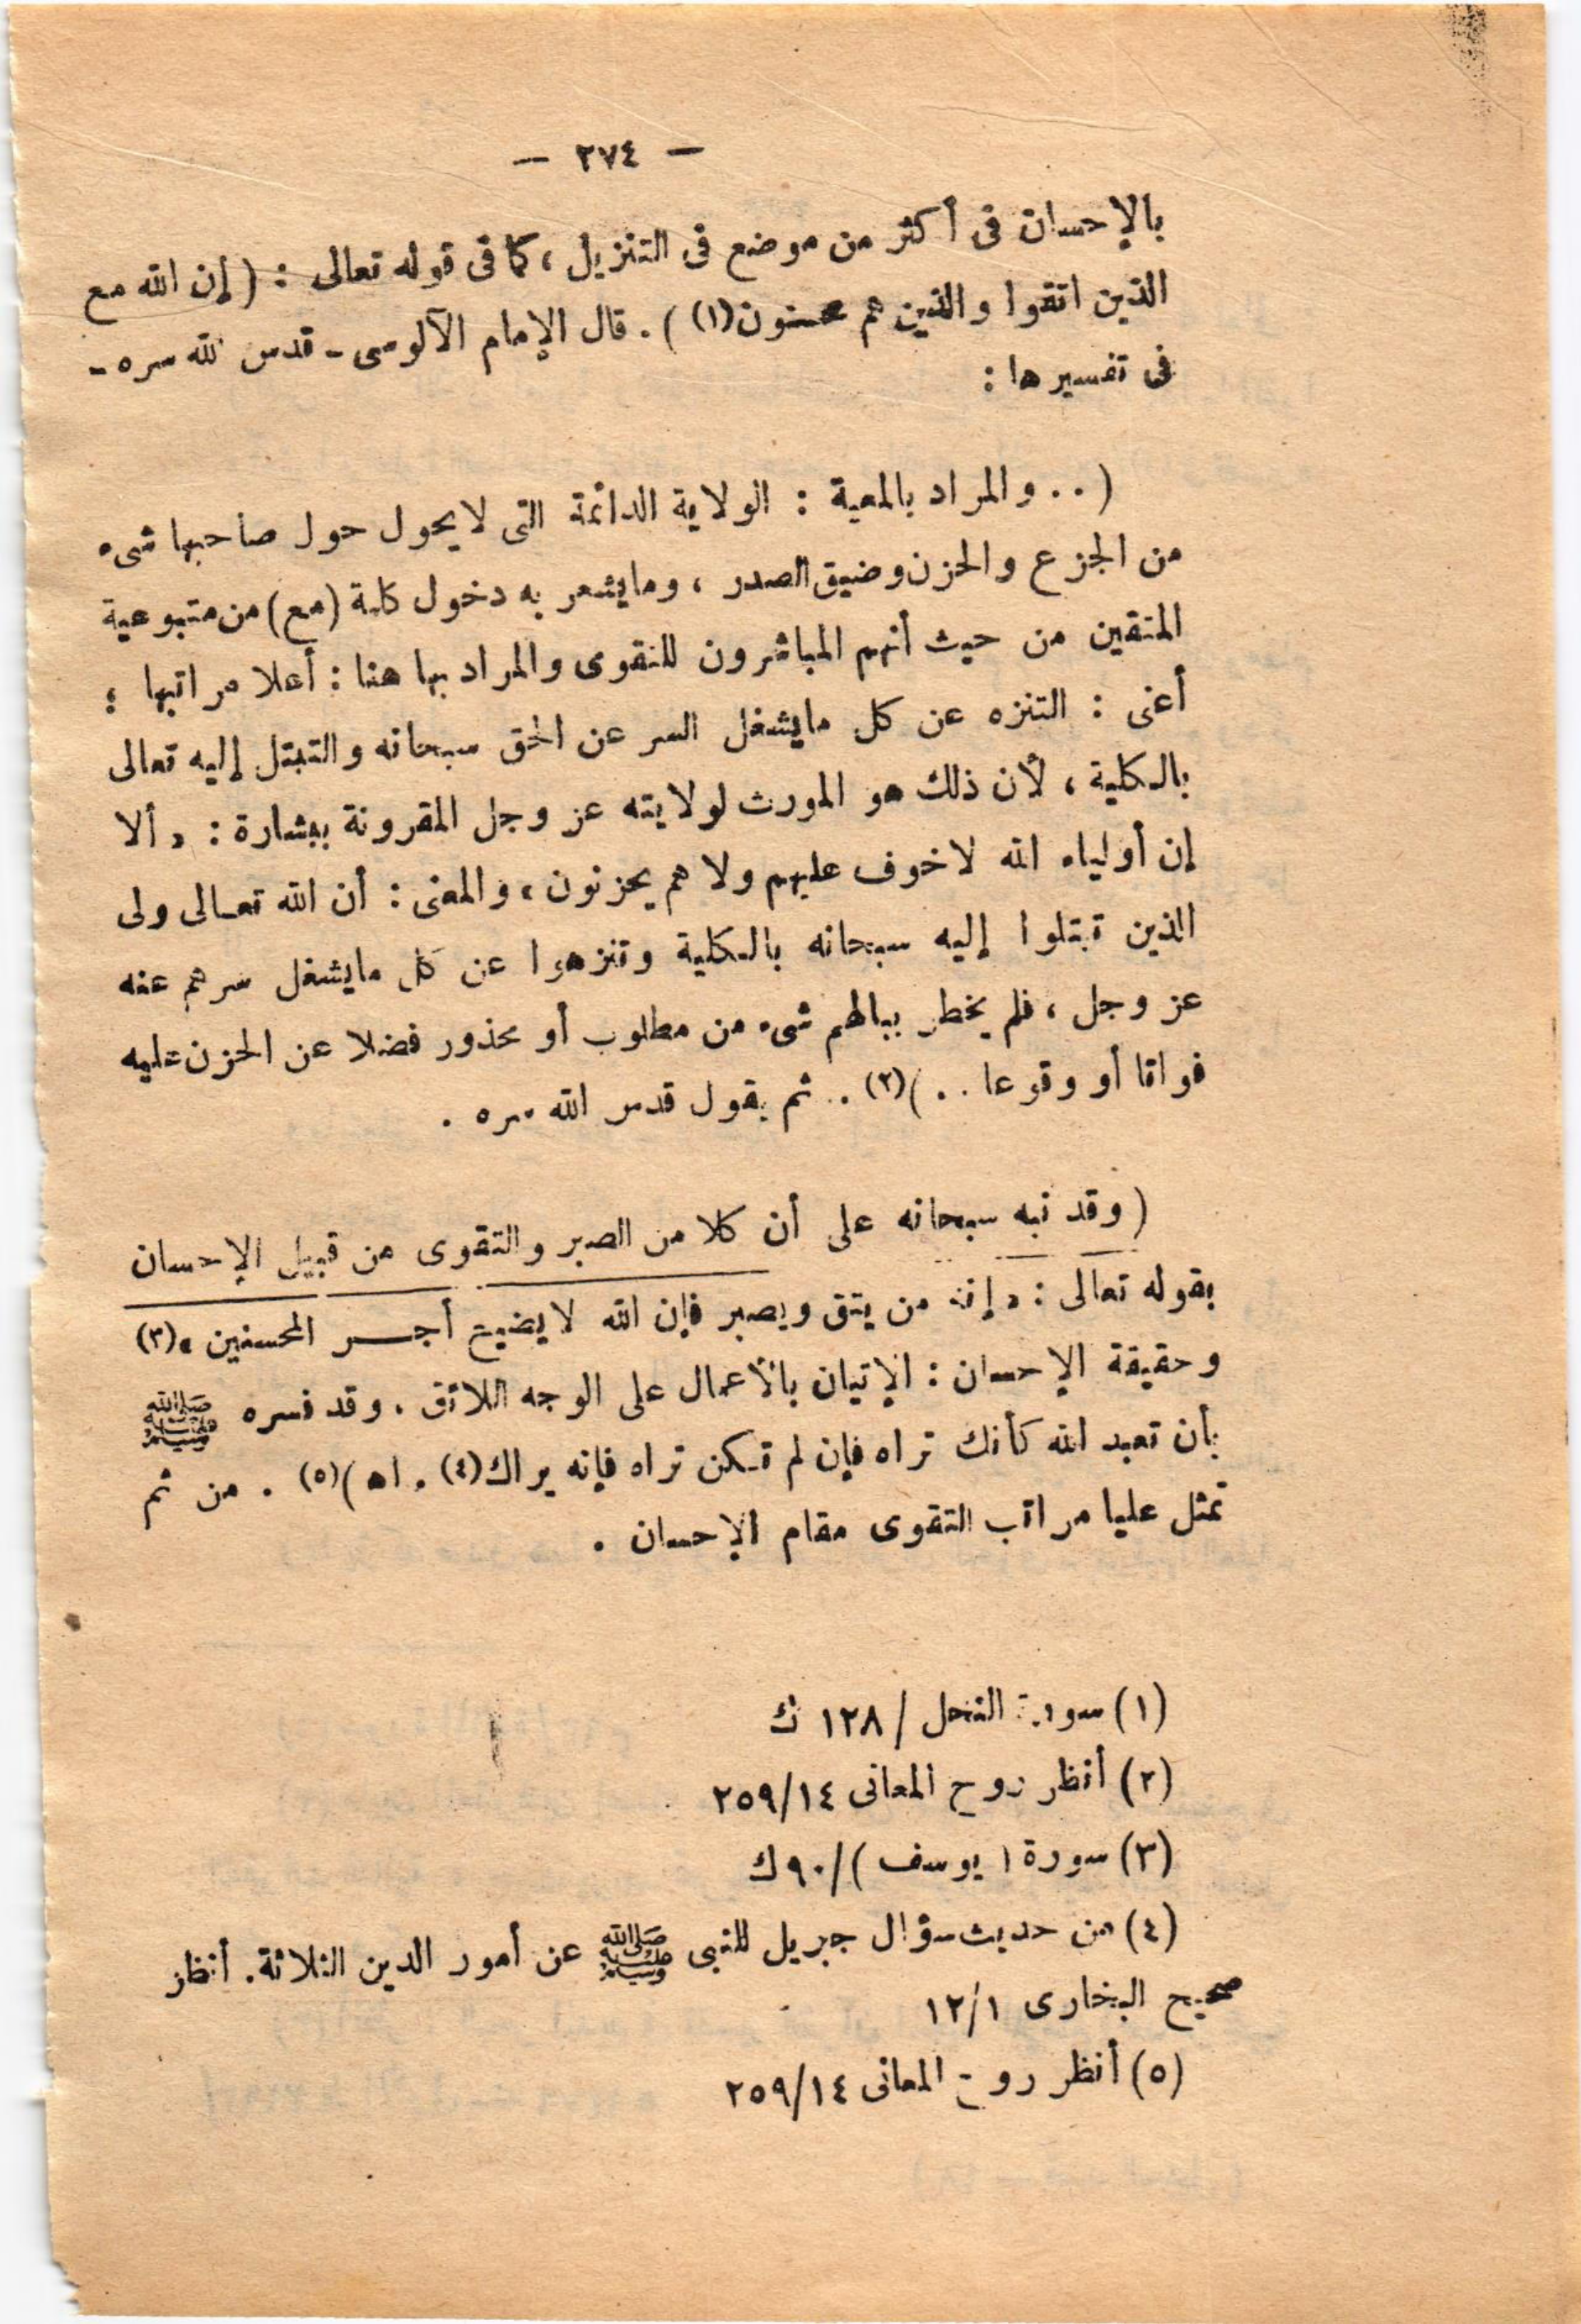 — ٢٧٤ —
بالإحسان فى أكثر من موضع فى التنزيل ، كما فى قوله تعالى : ( إن الله مع
الذين اتقوا والذين هم محسنون(١) ) . قال الإمام الآلوسى - قدس الله سره -
فى تفسيرها :
( . . والمراد بالمعية : الولاية الدائمة التى لا يحول حول صاحبها شىء
من الجزع والحزن وضيق الصدر ، وما يشعر به دخول كلمة (مع) من متبوعية
المتقين من حيث أنهم المباشرون للتقوى والمراد بها هنا : أعلا مراتبها ؛
أعنى : التنزه عن كل ما يشغل السر عن الحق سبحانه والتبتل إليه تعالى
بالكلية ، لأن ذلك هو المورث لولايته عز وجل المقرونة ببشارة : « ألا
إن أولياء الله لا خوف عليهم ولا هم يحزنون » والمعنى : أن الله تعالى ولى
الذين تبتلوا إليه سبحانه بالكلية وتنزهوا عن كل ما يشغل سرهم عنه
عز وجل ، فلم يخطر ببالهم شىء من مطلوب أو محذور فضلا عن الحزن عليه
فواتا أو وقوعا . . )(٢) . ثم يقول قدس الله سره .
( وقد نبه سبحانه على أن كلا من الصبر والتقوى من قبيل الإحسان
بقوله تعالى : « إنه من يتق ويصبر فإن الله لا يضيع أجر المحسنين »(٣)
وحقيقة الإحسان : الإتيان بالأعمال على الوجه اللائق . وقد فسره ﷺ
بأن تعبد الله كأنك تراه فإن لم تكن تراه فإنه يراك(٤) . اه )(٥) . من ثم
تمثل عليا مراتب التقوى مقام الإحسان .
(١) سورة النحل / ١٢٨ ك
(٢) أنظر روح المعانى ٢٥٩/١٤
(٣) سورة ( يوسف ) / ٩٠ ك
(٤) من حديث سؤال جبريل للنبى ﷺ عن أمور الدين الثلاثة . أنظر
صحيح البخارى ١٢/١
(٥) أنظر روح المعانى ٢٥٩/١٤